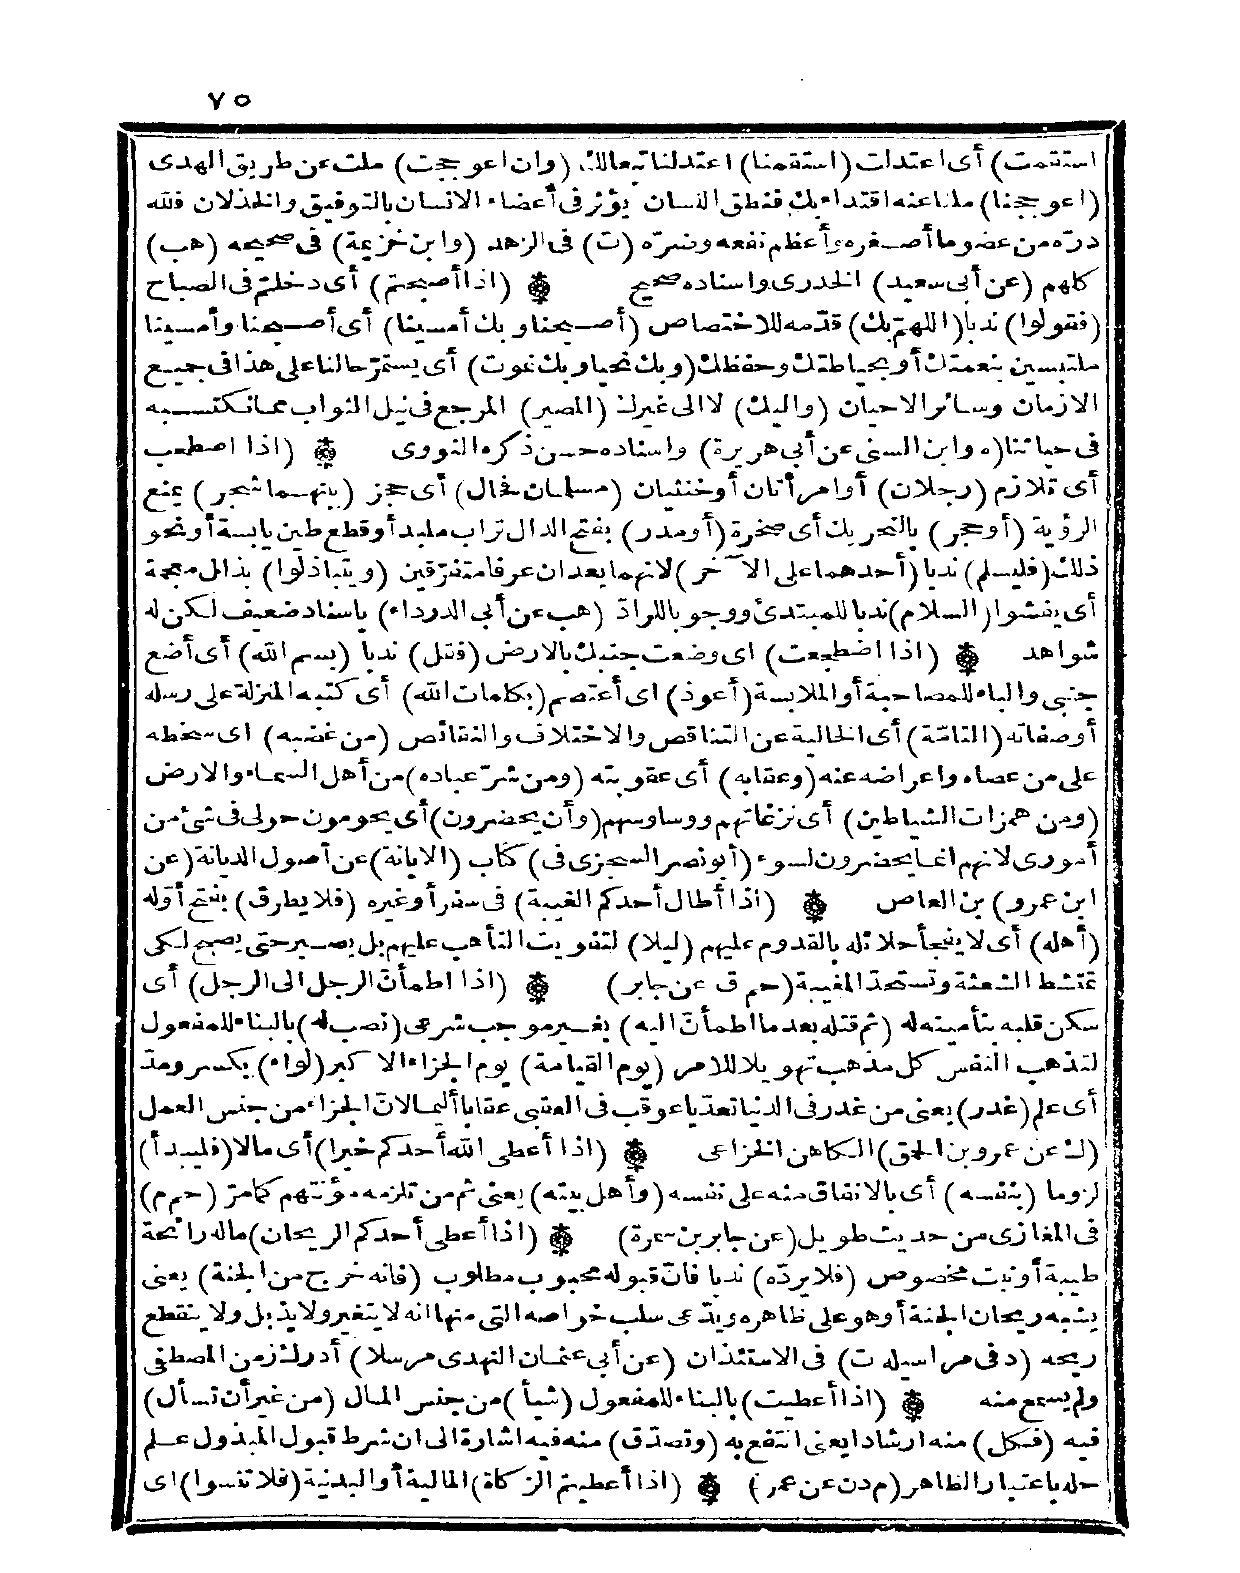 ٧٥
استقمت) أى اعتدلت (استقمنا) اعتدلنا تبعالك (وان اعوججت) ملت عن طريق الهدى
(اعوججنا) ملنا عنه اقتداء بك فنطق اللسان يؤثر فى أعضاء الانسان بالتوفيق والخذلان فلله
دره من عضو ما أصغره وأعظم نفعه وضره (ت) فى الزهد (وابن خزيمة) فى صحيحه (هب)
كلهم (عن أبى سعيد) الخدرى واسناده صحيح ۞ (اذا أصبحتم) أى دخلتم فى الصباح
(فقولوا) ندبا (اللهم بك) قدمه للاختصاص (أصبحنا وبك أمسينا) أى أصبحنا وأمسينا
ملتبسين بنعمتك أو بحياطتك وحفظك (وبك نحيا وبك نموت) أى يستمر حالنا على هذا فى جميع
الازمان وسائر الاحيان (واليك) لا الى غيرك (المصير) المرجع فى نيل الثواب مما نكتسبه
فى حياتنا (ه وابن السنى عن أبى هريرة) واسناده حسن ذكره النووى ۞ (اذا اصطحب
أى تلازم (رجلان) أو امرأتان أو خنثيان (مسلمان فحال) أى حجز (بينهما شجر) يمنع
الرؤية (أو حجر) بالتحريك أى صخرة (أو مدر) بفتح الدال تراب ملبد أو قطع طين يابسة أو نحو
ذلك (فليسلم) ندبا (أحدهما على الآخر) لانهما يعدان عرفا متفرقين (ويتباذلوا) بذال معجمة
أى يفشوا (السلام) ندبا للمبتدئ ووجوبا للراد (هب عن أبى الدرداء) باسناد ضعيف لكن له
شواهد ۞ (اذا اضطجعت) اى وضعت جنبك بالارض (فقل) ندبا (بسم الله) أى أضع
جنبى والباء للمصاحبة أو الملابسة (أعوذ) اى أعتصم (بكلمات الله) أى كتبه المنزلة على رسله
أو صفاته (التامّة) أى الخالية عن التناقص والاختلاف والنقائص (من غضبه) اى سخطه
على من عصاه واعراضه عنه (وعقابه) أى عقوبته (ومن شرّ عباده) من أهل السماء والارض
(ومن همزات الشياطين) أى نزغاتهم ووساوسهم (وأن يحضرون) أى يحومون حولى فى شئ من
أمورى لانهم انما يحضرون لسوء (أبو نصر السجزى فى) كتاب (الابانة) عن أصول الديانة (عن
ابن عمرو) بن العاص ۞ (اذا أطال أحدكم الغيبة) فى سفر أو غيره (فلا يطرق) بفتح أوّله
(أهله) أى لا يفجأ حلائله بالقدوم عليهم (ليلا) لتفويت التأهب عليهم بل يصبر حتى يصبح لكى
تمتشط الشعثة وتستحد المغيبة (حم ق عن جابر) ۞ (اذا اطمأنّ الرجل الى الرجل) أى
سكن قلبه بتأمينه له (ثم قتله بعد ما اطمأنّ اليه) بغير موجب شرعى (نصب له) بالبناء للمفعول
لتذهب النفس كل مذهب تهويلا للامر (يوم القيامة) يوم الجزاء الاكبر (لواء) بكسر ومدّ
أى علم (غدر) يعنى من غدر فى الدنيا تعديا عوقب فى العقبى عقابا أليما لانّ الجزاء من جنس العمل
(ك عن عمرو بن الحمق) الكاهن الخزاعى ۞ (اذا أعطى الله أحدكم خيرا) أى مالا (فليبدأ)
لزوما (بنفسه) أى بالانفاق منه على نفسه (وأهل بيته) يعنى ثم من تلزمه مؤنتهم كما مرّ (حم م)
فى المغازى من حديث طويل (عن جابر بن سمرة) ۞ (اذا أعطى أحدكم الريحان) ماله رائحة
طيبة أو نبت مخصوص (فلا يردّه) ندبا فانّ قبوله محبوب مطلوب (فانه خرج من الجنة) يعنى
يشبه ريحان الجنة أو هو على ظاهره ويدّعى سلب خواصه التى منها انه لا يتغير ولا يذبل ولا ينقطع
ريحه (د فى مراسيله ت) فى الاستئذان (عن أبى عثمان النهدى مرسلا) أدرك زمن المصطفى
ولم يسمع منه ۞ (اذا أعطيت) بالبناء للمفعول (شيأ) من جنس المال (من غير أن تسأل)
فيه (فكل) منه ارشادا يعنى انتفع به (وتصدّق) منه فيه اشارة الى ان شرط قبول المبذول علم
حله باعتبار الظاهر (م د ن عن عمر) ۞ (اذا أعطيتم الزكاة) المالية أو البدنية (فلا تنسوا) اى